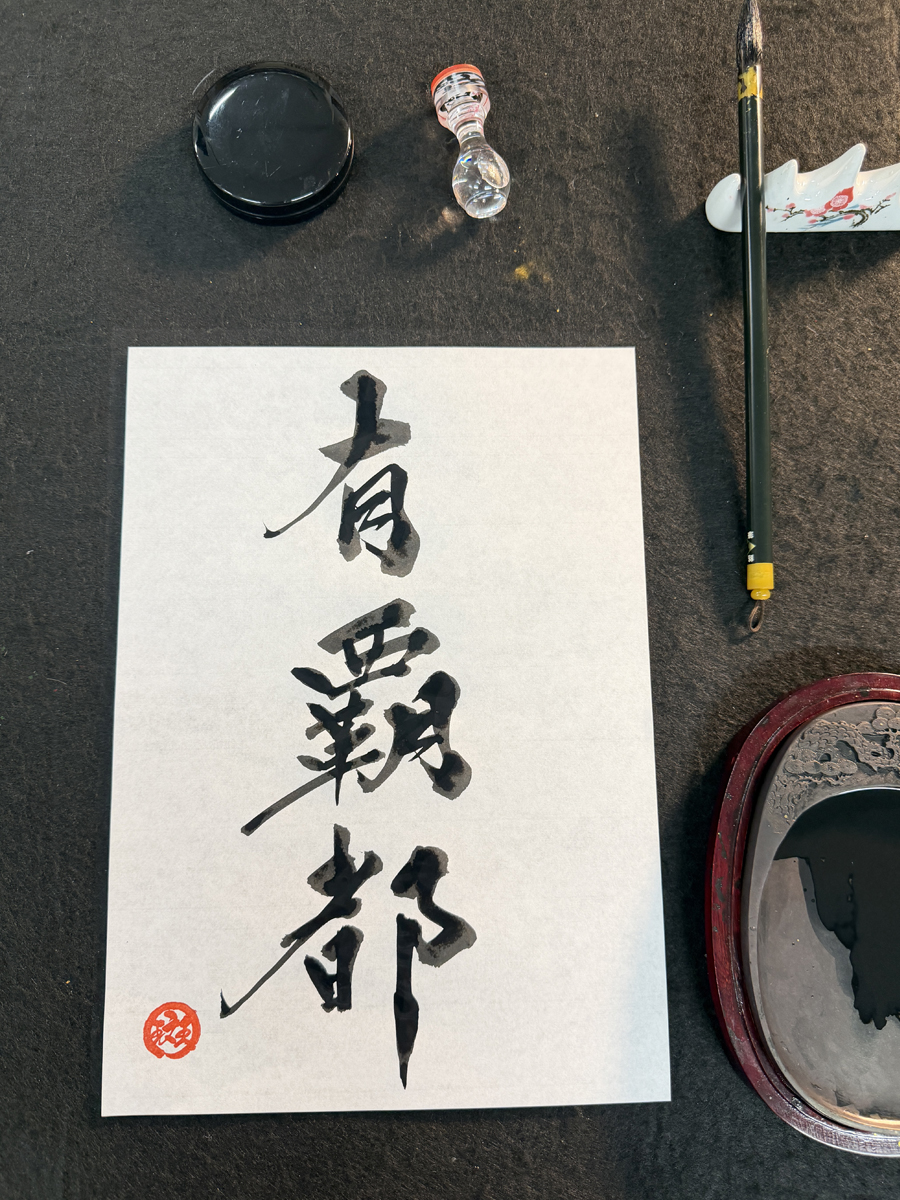 有覇都